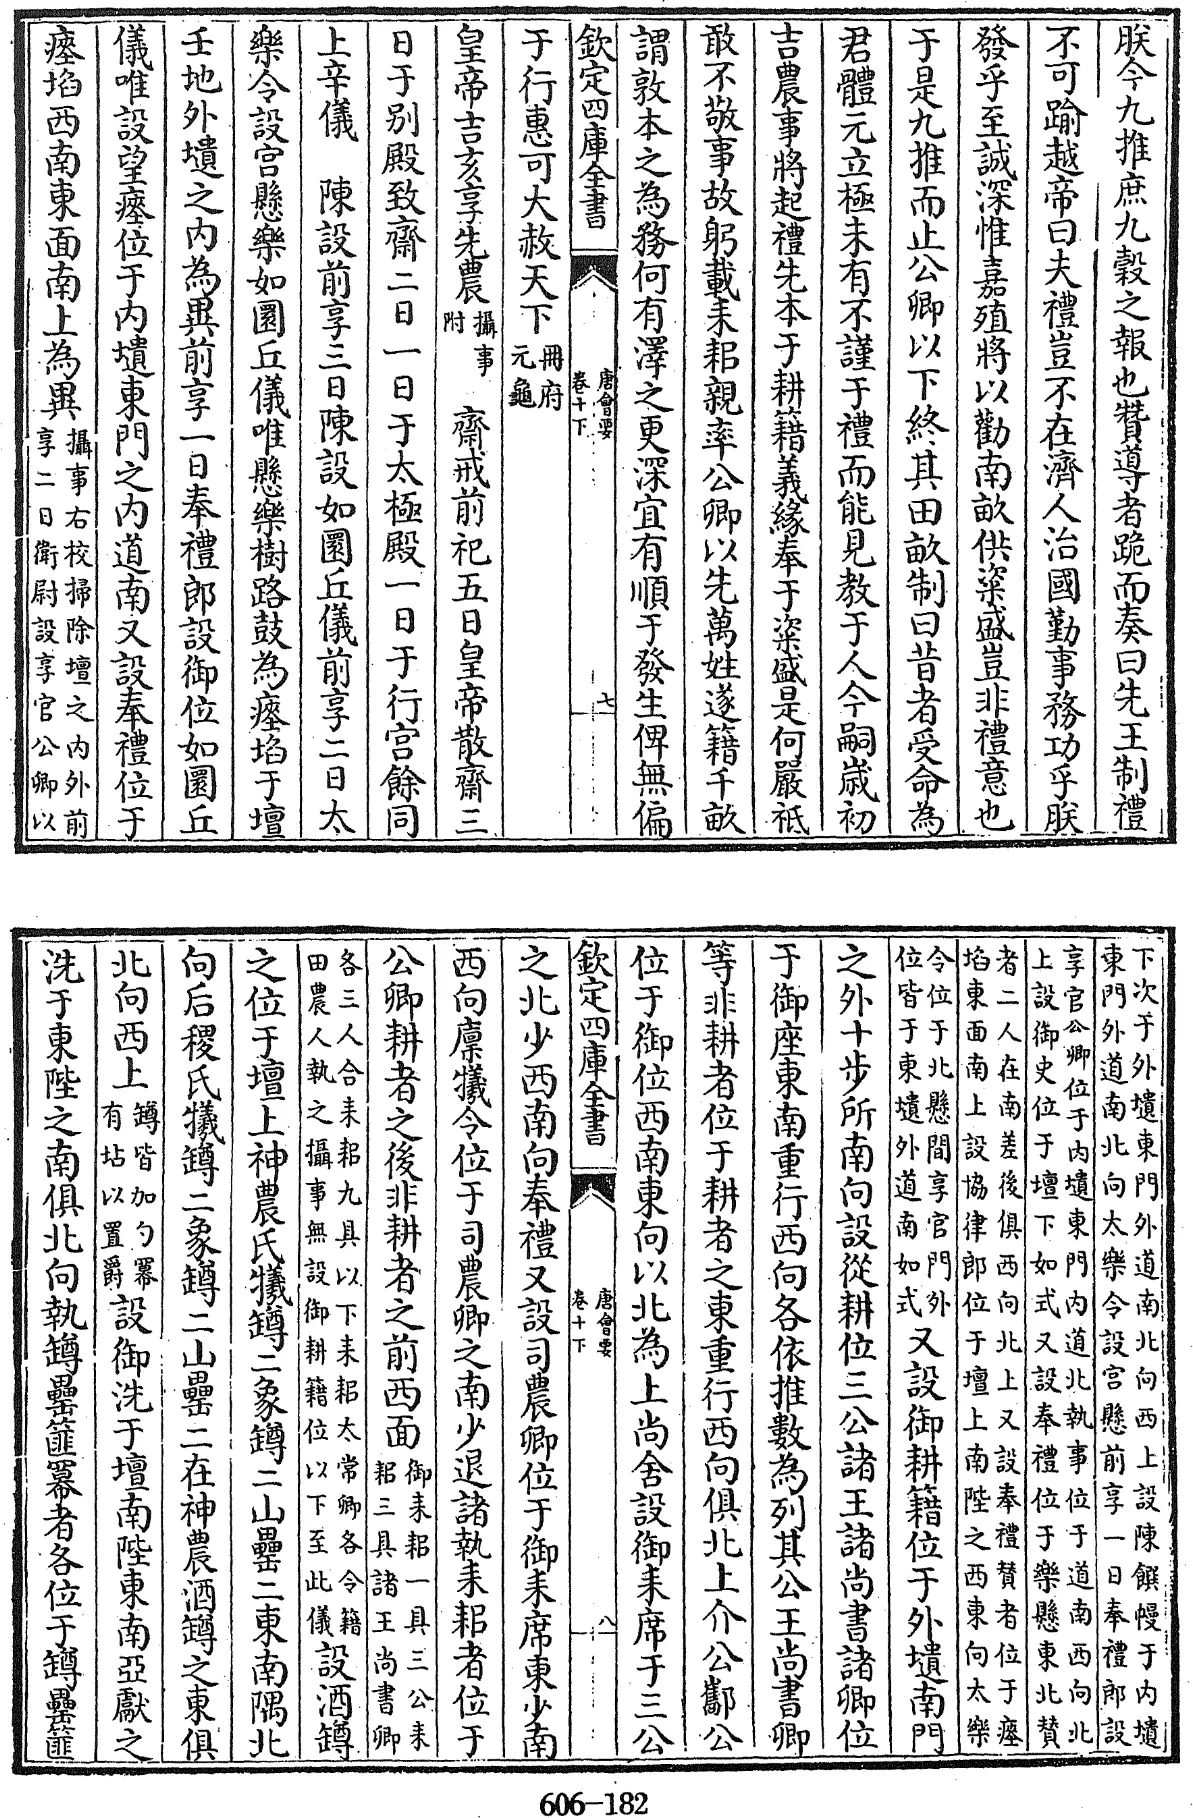 朕今九推庶九穀之報也贊導者跪而奏曰先王制禮
不可踰越帝曰夫禮豈不在濟人治國勤事務功乎朕
發乎至誠深惟嘉殖將以勸南畝供粢盛豈非禮意也
于是九推而止公卿以下終其田畝制曰昔者受命為
君體元立極未有不謹于禮而能見教于人今嗣歲初
吉農事將起禮先本于耕籍義緣奉于粢盛是何嚴祗
敢不敬事故躬載耒耜親率公卿以先萬姓遂籍千畝
謂敦本之為務何有澤之更深宜有順于發生俾無偏
欽定四庫全書
唐會要
卷十下
七
于行惠可大赦天下
冊府
元龜
皇帝吉亥享先農
攝事
附
齋戒前祀五日皇帝散齋三
日于別殿致齋二日一日于太極殿一日于行宮餘同
上辛儀 陳設前享三日陳設如圜丘儀前享二日太
樂令設宮懸樂如圜丘儀唯懸樂樹路鼓為瘞埳于壇
壬地外壝之內為異前享一日奉禮郎設御位如圜丘
儀唯設望瘞位于內壝東門之內道南又設奉禮位于
瘞埳西南東面南上為異
攝事右校掃除壇之內外前
享二日衛尉設享官公卿以
下次于外壝東門外道南北向西上設陳饌幔于內壝
東門外道南北向太樂令設宮懸前享一日奉禮郎設
享官公卿位于內壝東門內道北執事位于道南西向北
上設御史位于壇下如式又設奉禮位于樂懸東北贊
者二人在南差後俱西向北上又設奉禮贊者位于瘞
埳東面南上設協律郎位于壇上南陛之西東向太樂
令位于北懸間享官門外
位皆于東壝外道南如式
又設御耕籍位于外壝南門
之外十步所南向設從耕位三公諸王諸尚書諸卿位
于御座東南重行西向各依推數為列其公王尚書卿
等非耕者位于耕者之東重行西向俱北上介公酅公
位于御位西南東向以北為上尚舍設御耒席于三公
欽定四庫全書
唐會要
卷十下
八
之北少西南向奉禮又設司農卿位于御耒席東少南
西向廩犧令位于司農卿之南少退諸執耒耜者位于
公卿耕者之後非耕者之前西面
御耒耜一具三公耒
耜三具諸王尚書卿
各三人合耒耜九具以下耒耜太常卿各令籍
田農人執之攝事無設御耕籍位以下至此儀
設酒罇
之位于壇上神農氏犧罇二象罇二山罍二東南隅北
向后稷氏犧罇二象罇二山罍二在神農酒罇之東俱
北向西上
罇皆加勺冪
有坫以置爵
設御洗于壇南陛東南亞獻之
洗于東陛之南俱北向執罇罍篚冪者各位于罇罍篚
606-182